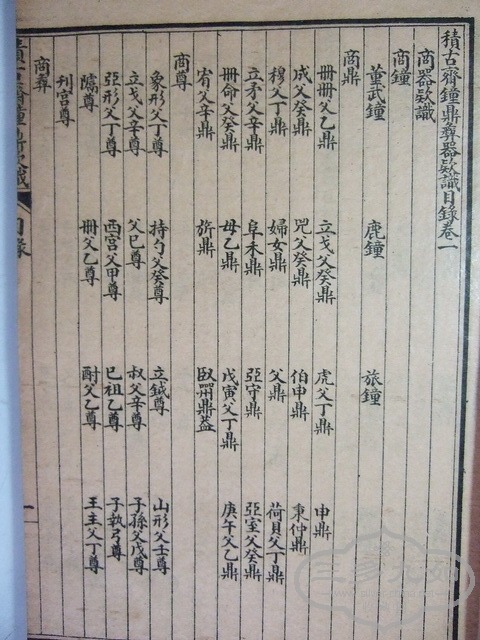 積古齋鐘鼎彝器款識目錄卷一
商器款識
商鐘
董武鐘 鹿鐘 旅鐘
商鼎
冊冊父乙鼎 立戈父癸鼎 虎父丁鼎 申鼎
成父癸鼎 兕父癸鼎 伯申鼎 秉仲鼎
穆父丁鼎 婦女鼎 父鼎 荷貝父丁鼎
立矛父辛鼎 阜未鼎 亞守鼎 亞室父癸鼎
冊命父癸鼎 母乙鼎 戊寅父丁鼎 庚午父乙鼎
宥父辛鼎 旂鼎 鼎蓋
商尊
象形父丁尊 持勺父癸尊 立鉞尊 山形父壬尊
立戈父辛尊 父巳尊 叔父辛尊 子孫父戊尊
亞形父丁尊 酉宮父甲尊 巳祖乙尊 子執弓尊
尊 冊父乙尊 酎父乙尊 王主父丁尊
刊宮尊
商彝
積古齋鐘鼎款識
目錄
一